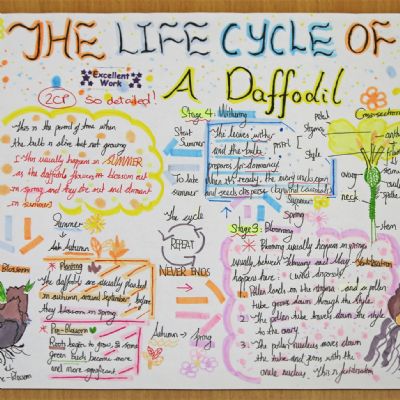 THE LIFE CYCLE OF
A Daffodil
Excellent
Work
2CP So detailed!
This is the period of time when
the bulb is alive but not growing
This usually happens in SUMMER
as the daffodils flowers
in spring and they die out and dormant
in summer
Summer
late Autumn
Planting
The daffodils are usually planted
in autumn, around September before
they blossom in spring.
Pre-Blossom
Roots begin to grow, &
green become more
and more significant.
Blossom
Pre-Blossom
Stage 4: Withering
Start
Summer
To late
summer
The leaves wither
and the bulb
prepares for dormancy.
When it's ready, the ovary
and seeds disperse
Summer
Spring
The cycle
REPEAT
NEVER ENDS
Autumn → Spring
Stage 3: Blooming
Blooming usually happens in spring
usually between February and May.
happens here:
1. Pollen lands on the stigma and a pollen
tube grows down through the style
2. The pollen tube travels down the style
to the ovary.
3. The pollen nucleus moves down
the tube and joins with the
ovule nucleus. This is fertilisation
Cross-section
petal
stigma
pistil
style
ovary
neck
stem